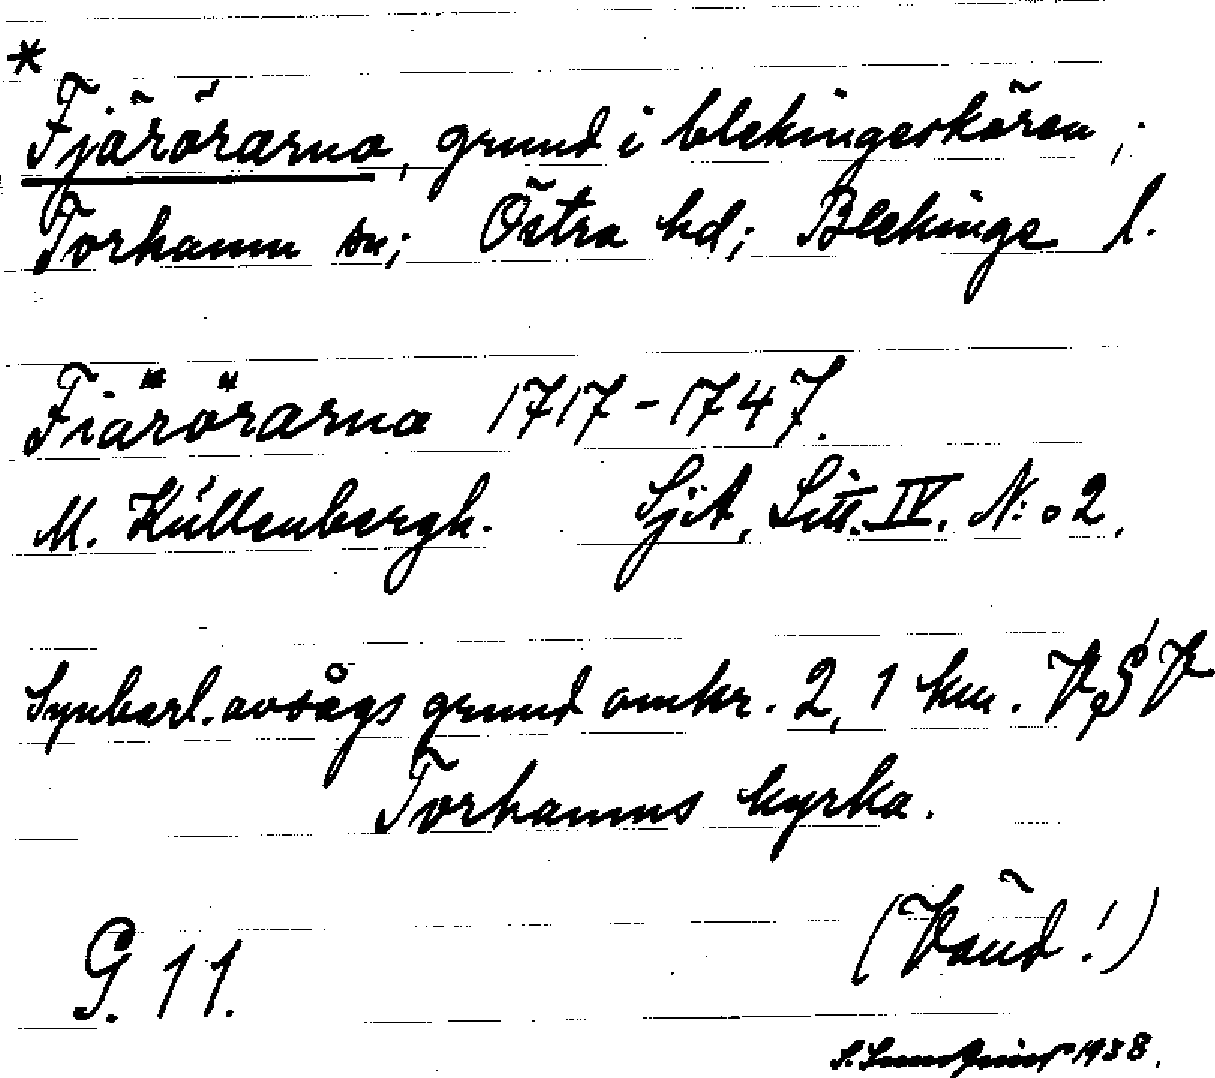 *
Fjärörarna, grund i blekingeskären;
Torhamn sn; Östra hd; Blekinge l.
Fiärörarna 1717-1747.
M. Küllenbergh. SjöA, Litt. IV. N:o 2.
Synbarl. avsågs grund omkr. 2,1 km. V§V
Torhamns kyrka.
G. 11. (Vänd!)
1938.